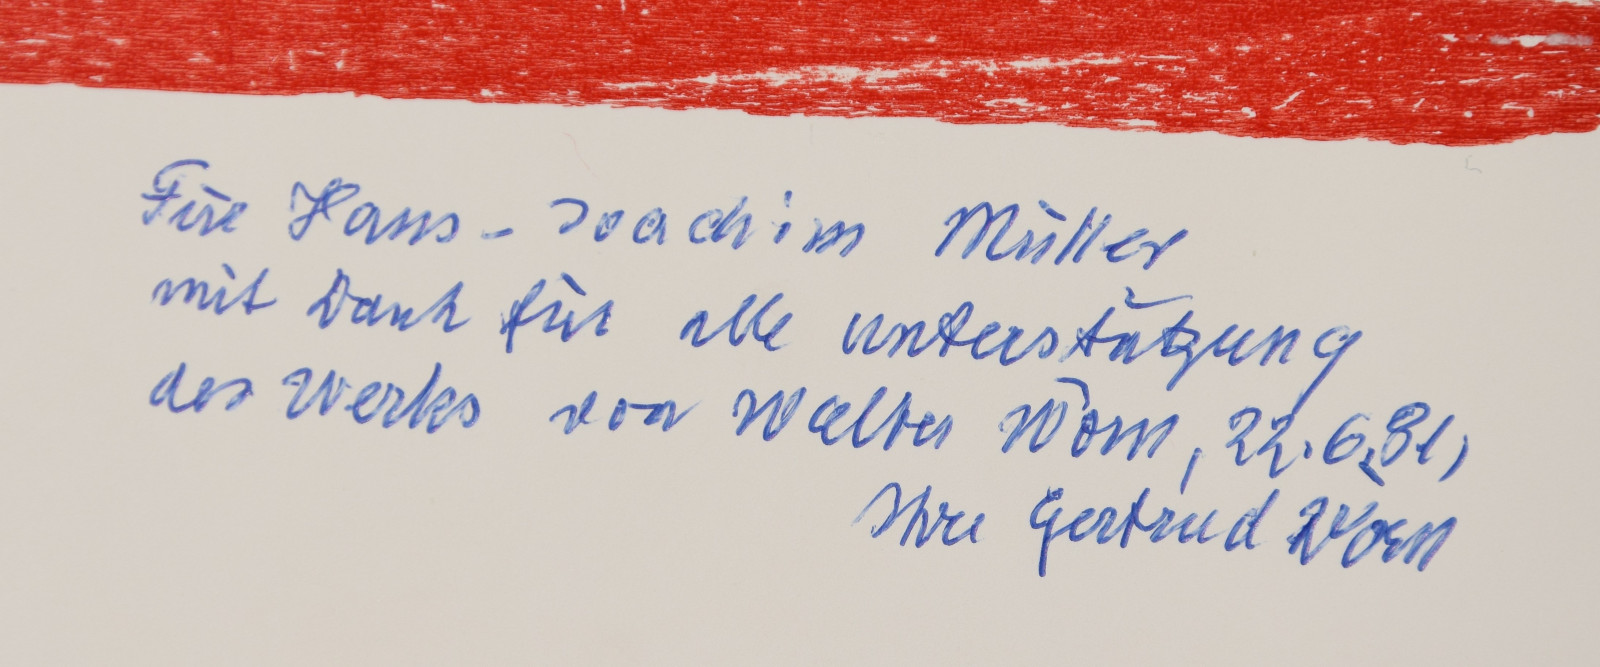 Für Hans-Joachim Müller
mit Dank für alle Unterstützung
des Werks von Walter Wörn, 22.6.81,
Ihre Gertrud Wörn